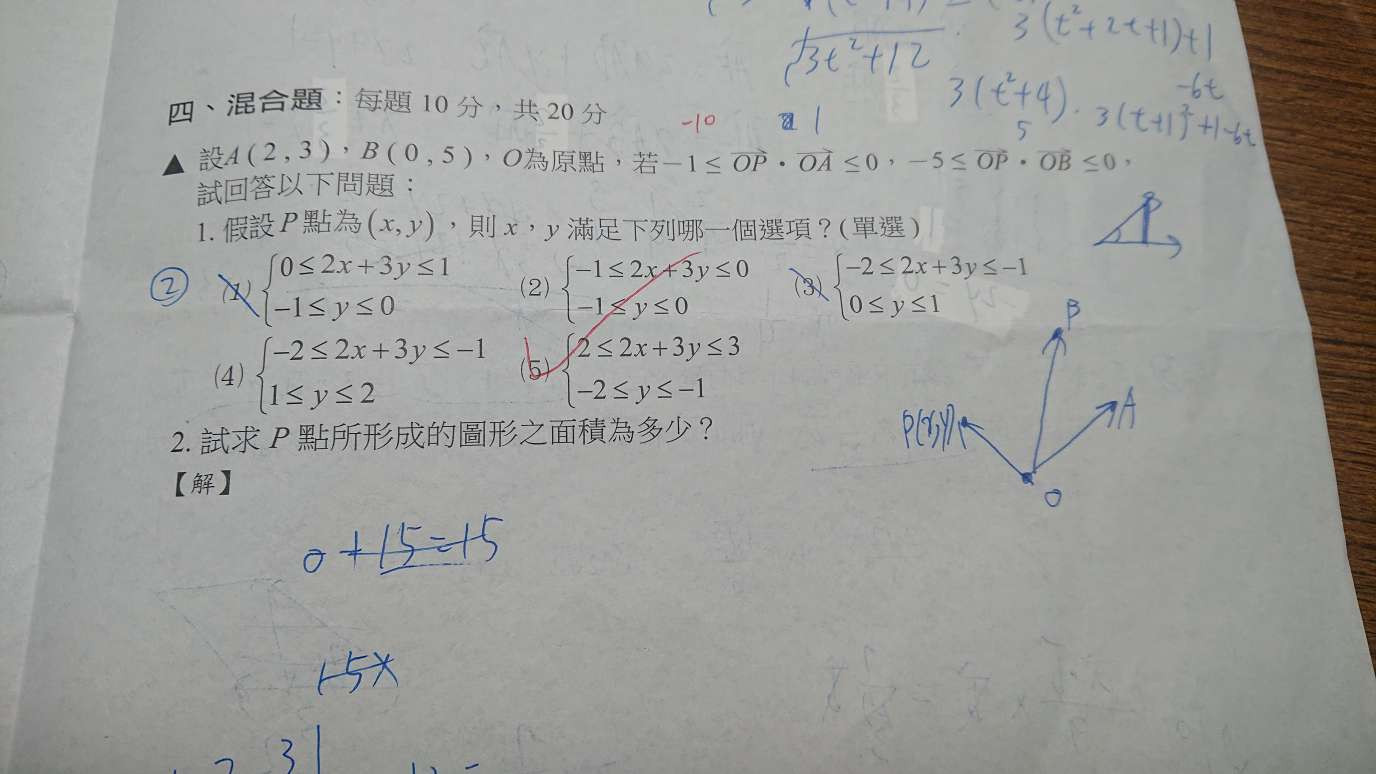 √3t²+12
3(t²+2t+1)+1
3(t²+4).
-6t
5
3(t+1)²+1-6t
四、混合題：每題 10 分，共 20 分
-10
1
▲ 設A(2,3)，B(0,5)，O為原點，若−1≤OP・OA≤0，−5≤OP・OB≤0，
試回答以下問題：
1. 假設P點為(x,y)，則x，y滿足下列哪一個選項？(單選)
②
(1) {0≤2x+3y≤1
−1≤y≤0
(2) {−1≤2x+3y≤0
−1≤y≤0
(3) {−2≤2x+3y≤−1
0≤y≤1
(4) {−2≤2x+3y≤−1
1≤y≤2
(5) {2≤2x+3y≤3
−2≤y≤−1
B
A
P(x,y)
O
2. 試求P點所形成的圖形之面積為多少？
【解】
0+15=15
-5x
2 3